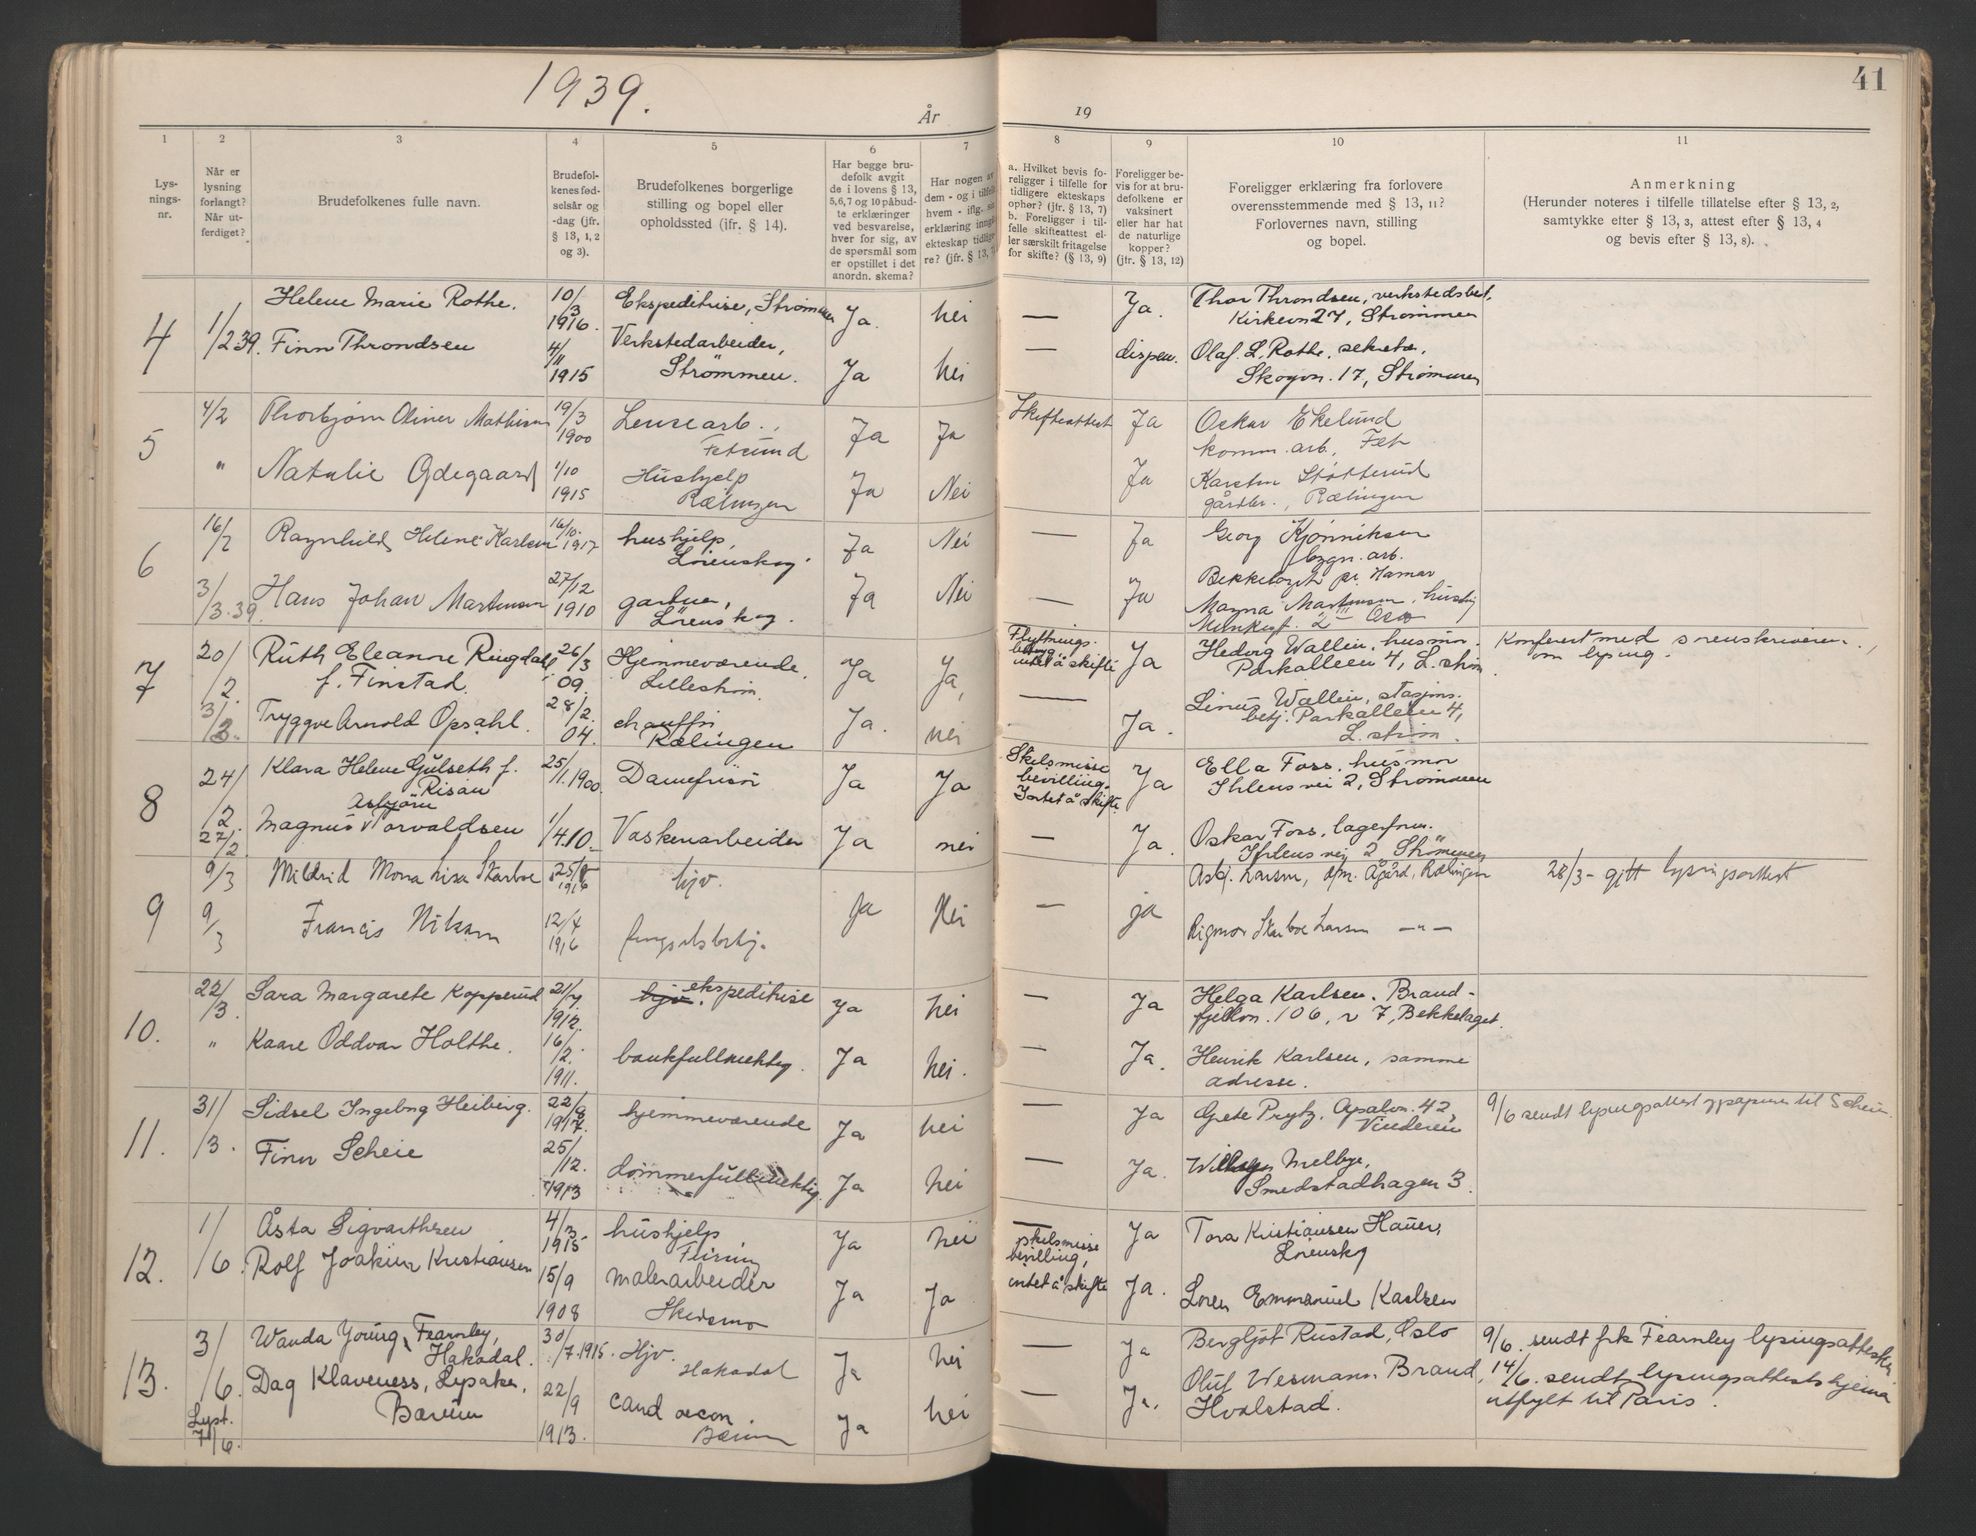 1939.
År
19
41
1
2
3
4
5
6
7
8
9
10
11
Lys-
nings-
nr.
Når er
lysning
forlangt?
Når ut-
ferdiget?
Brudefolkenes fulle navn.
Brudefol-
kenes fød-
selsår og
-dag (jfr.
§ 13, 1, 2
og 3).
Brudefolkenes borgerlige
stilling og bopel eller
opholdssted (jfr. § 14).
Har begge bru-
defolk avgit
de i lovens § 13,
5, 6, 7 og 10 påbud-
te erklæringer
ved besvarelse,
hver for sig, av
de spørsmål som
er opstillet i det
anordn. skema?
Har nogen av
dem - og i tilfelle
hvem - iflg.
erklæring inngått
ekteskap tidlige-
re? (jfr. § 13, 7)
a. Hvilket bevis fo-
religger i tilfelle for
tidligere ekteskaps
ophør? (jfr. § 13, 7)
b. Foreligger i til-
felle skifteattest el-
ler særskilt fritagelse
for skifte? (§ 13, 9)
Foreligger be-
vis for at bru-
defolkene er
vaksinert
eller har hat
de naturlige
kopper?
(jfr. § 13, 12)
Foreligger erklæring fra forlovere
overensstemmende med § 13, 11?
Forlovernes navn, stilling
og bopel.
Anmerkning
(Herunder noteres i tilfelle tillatelse efter § 13, 2,
samtykke efter § 13, 3, attest efter § 13, 4
og bevis efter § 13, 8).
4
1/2 39.
Helene Marie Rothe.
10/3 1916.
Ekspeditrise, Strømmen
Ja.
Nei
—
Ja.
Thor Throndsen, verkstedsbest,
Kirkevn 27, Strømmen
Finn Throndsen
4/11 1915
Verkstedarbeider,
Strømmen.
Ja
Nei
—
dispen.
Olaf L. Rothe, sekretær,
Skogvn. 17, Strømmen
5
4/2
Thorbjørn Oliner Mathisen
19/3 1900
Lensearb.,
Fetsund
Ja
Ja
Skifteattest
Ja
Oskar Ekelund
komm. arb, Fet
"
Natalie Ødegaard
1/10 1915
Hushjelp
Rælingen
Ja
Nei
Ja
Karsten Støtterud
gårdbr., Rælingen
6
16/2
Ragnhild Helene Karlsen
16/10. 1917
hushjelp,
Lørenskog.
Ja
Nei
—
Ja
Georg Kjønniksen
bygn. arb.
Bekkelaget pr. Hamar
3/3.39.
Hans Johan Martinsen
27/12 1910
gartner,
Lørenskog.
Ja
Nei
—
Ja
Magna Martinsen, husbest
Munkegt. 2 III Oslo
7
20/2.
Ruth Eleanore Ringdahl
f. Finstad.
26/3 09.
Hjemmeværende,
Lillestrøm.
Ja
Ja,
Flyttnings-
intet å skifte
Ja
Hedvig Wallin, husmor.
Parkalleen 4, L. strøm
Konferert med sorenskriveren,
om lysing.
3/3.
Tryggve Arnold Opsahl.
28/2. 04.
chauffør
Rælingen
Ja.
nei
—
Ja.
Linus Wallin, stasjons.
betj. Parkalleen 4,
L. strøm.
8
24/2.
Klara Helene Gulseth f.
Risan
25/1.1900.
Damefrisør
Ja
Ja
Skilsmisse
bevilling.
Intet å skifte.
Ja
Ella Foss, husmor
Ihlens vei 2, Strømmen
27/2.
Asbjørn
Magnus v Torvaldsen
1/4.10.
Vaskeriarbeider
Ja
nei
—
Ja.
Oskar Foss, lagerform.
Ihlens vei 2 Strømmen
9
9/3
Mildrid Mona Lisa Skarboe
25/8 1916
hjv.
Ja
Nei
—
ja
Asbj. Larsen, Ågård, Rælingen
28/3 - gitt lysningsattest
9/3
Francis Nilsen
12/4 1916
fengselsbetj.
Rigmor Skarboe Larsen —"—
10.
22/3.
Sara Margarete Kopperud
21/7. 1912.
hjv. ekspeditrise
Ja
Nei
—
Ja
Helga Karlsen. Brand-
fjellvn. 106, v 7, Bekkelaget.
"
Kaare Oddvar Holthe.
16/2. 1911.
bankfullmektig.
Ja
Nei.
—
Ja.
Henrik Karlsen, samme
adresse.
11.
31/3.
Sidsel Ingebog Heiberg.
22/8 1917.
hjemmeværende
Ja
Nei
—
Ja
Grete Prytz. Apalvn. 42,
Vinderen
9/6 sendt lysingsattest og papirer til Scheie.
Finn Scheie
25/12. 1913
dommerfullmektig
Ja
Nei
—
Ja.
Melbye,
Smedstadhagen 3.
12.
1/6.
Åsta Sigvarthsen
4/3 1915
hushjelp
Feiring
Ja
Nei
—
Ja
Tora Kristiansen Hauer,
Lørenskog
Rolf Joakim Kristiansen
15/9 1908
malerarbeider
Skedsmo
Ja
Ja
skilsmisse
bevilling,
intet å skifte
Ja.
Loren Emmanuel Karlsen
13.
3/6.
Wanda Young Fearnley,
Hakadal.
30/7.1915.
Hjv.
Hakadal
Ja
Nei
—
Ja
Bergljot Rustad, Oslo
9/6. sendt frk Fearnley lysingsattesten
Lyst.
7/6.
Dag Klaveness, Lysaker,
Bærum
22/9 1913.
cand oecon.
Bærum
Ja
Nei
—
Ja.
Oluf Wesmann Brand,
Hvalstad.
14/6. sendt lysingsattestskjema
utfylt til Paris.